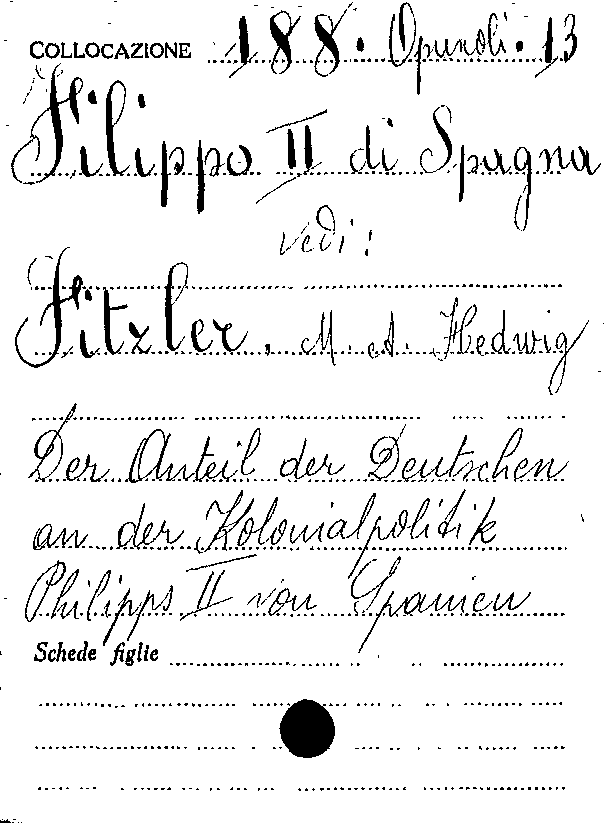 COLLOCAZIONE 188. Opuscoli. 13
Filippo II di Spagna
vedi:
Fitzler, M. A. Hedwig
Der Anteil der Deutschen
an der Kolonialpolitik
Philipps II von Spanien
Schede figlie